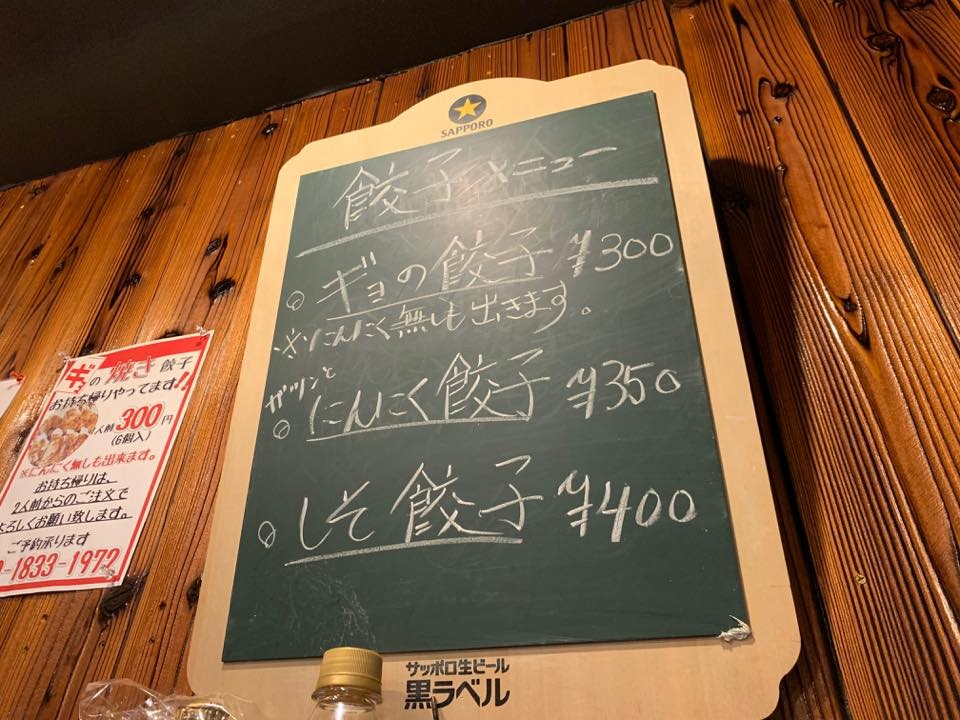 SAPPORO
餃子メニュー
ギョの餃子 ¥300
※にんにく無しも出きます。
ガツンと
にんにく餃子 ¥350
しそ餃子 ¥400
サッポロ生ビール
黒ラベル
ギョの焼き餃子
お持ち帰りやってます!!
人前300円
(6個入)
※にんにく無しも出来ます。
お持ち帰りは、
2人前からのご注文で
よろしくお願い致します。
ご予約承ります
-1833-1972